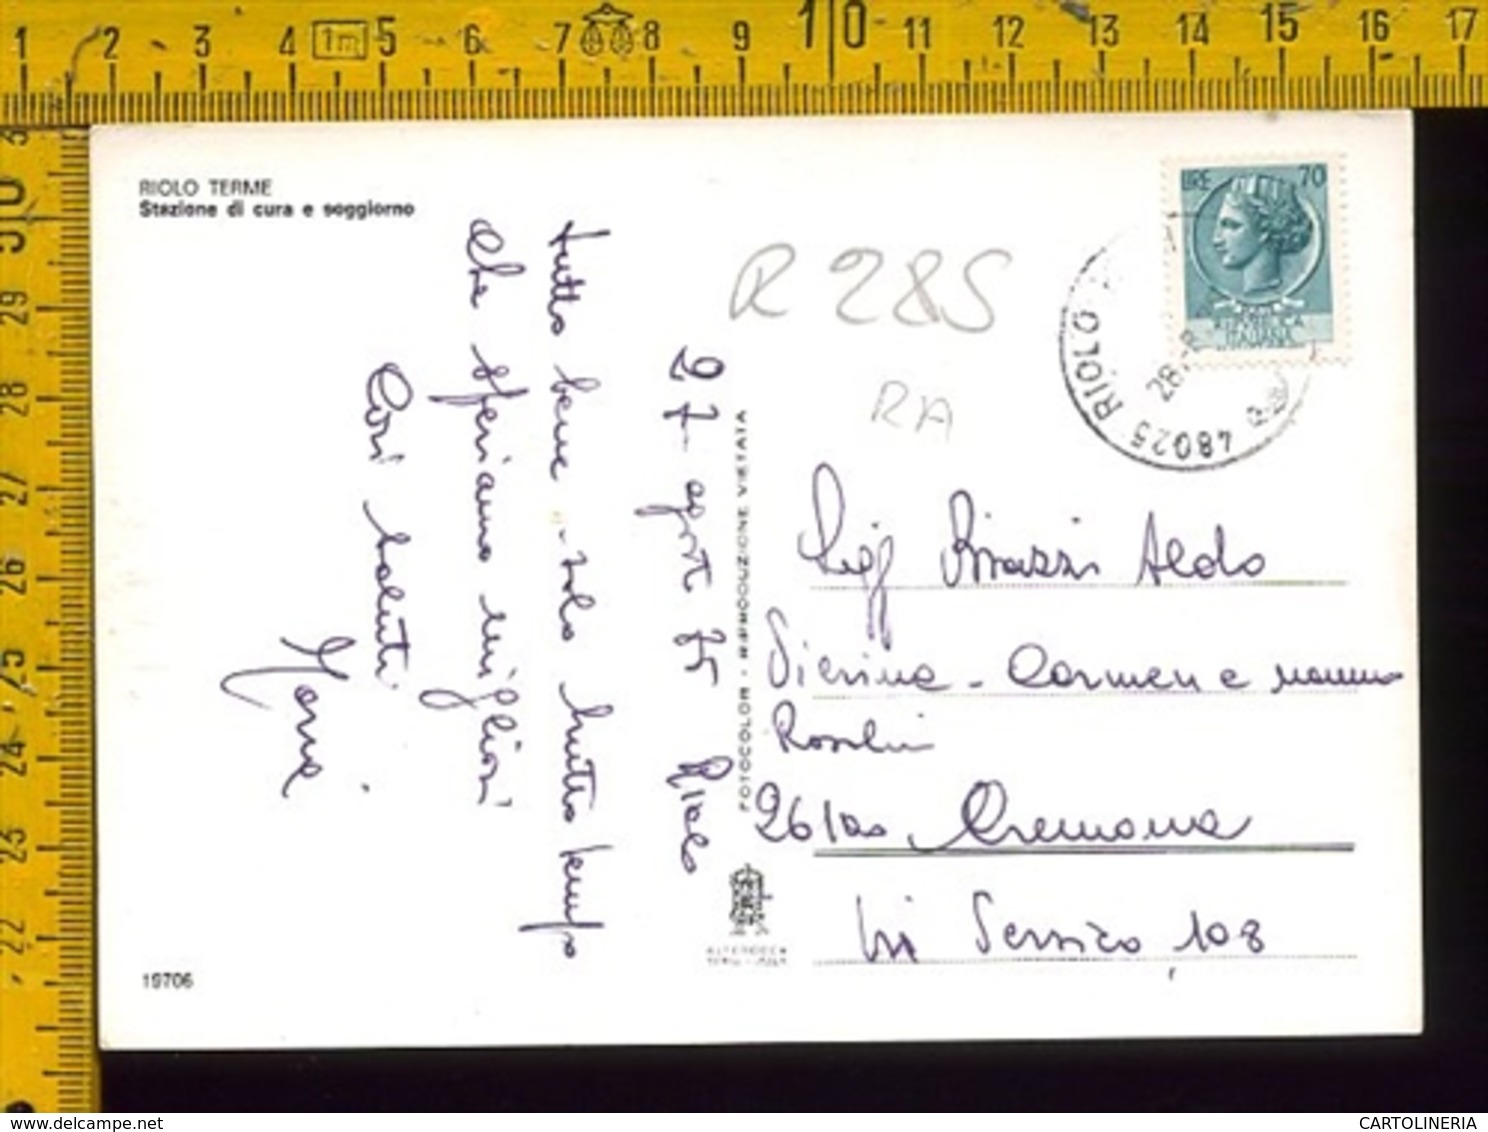 RIOLO TERME
Stazione di cura e soggiorno
27 agosto 75 Riolo
tutto bene - solo brutto tempo
che speriamo migliori
Cari saluti
Maria
19706
FOTOCOLOR - RIPRODUZIONE VIETATA
ALTEROCCA
TERNI - ITALY
R 285
RA
LIRE 70
REPUBBLICA
ITALIANA
48025 RIOLO
28-8
Sig Aldo
Pierina - Carmen e nonna
26100 Cremona
108
1 2 3 4 1m 5 6 7 8 9 10 11 12 13 14 15 16 17
29
28
27
26
25
24
23
22
delcampe.net
CARTOLINERIA